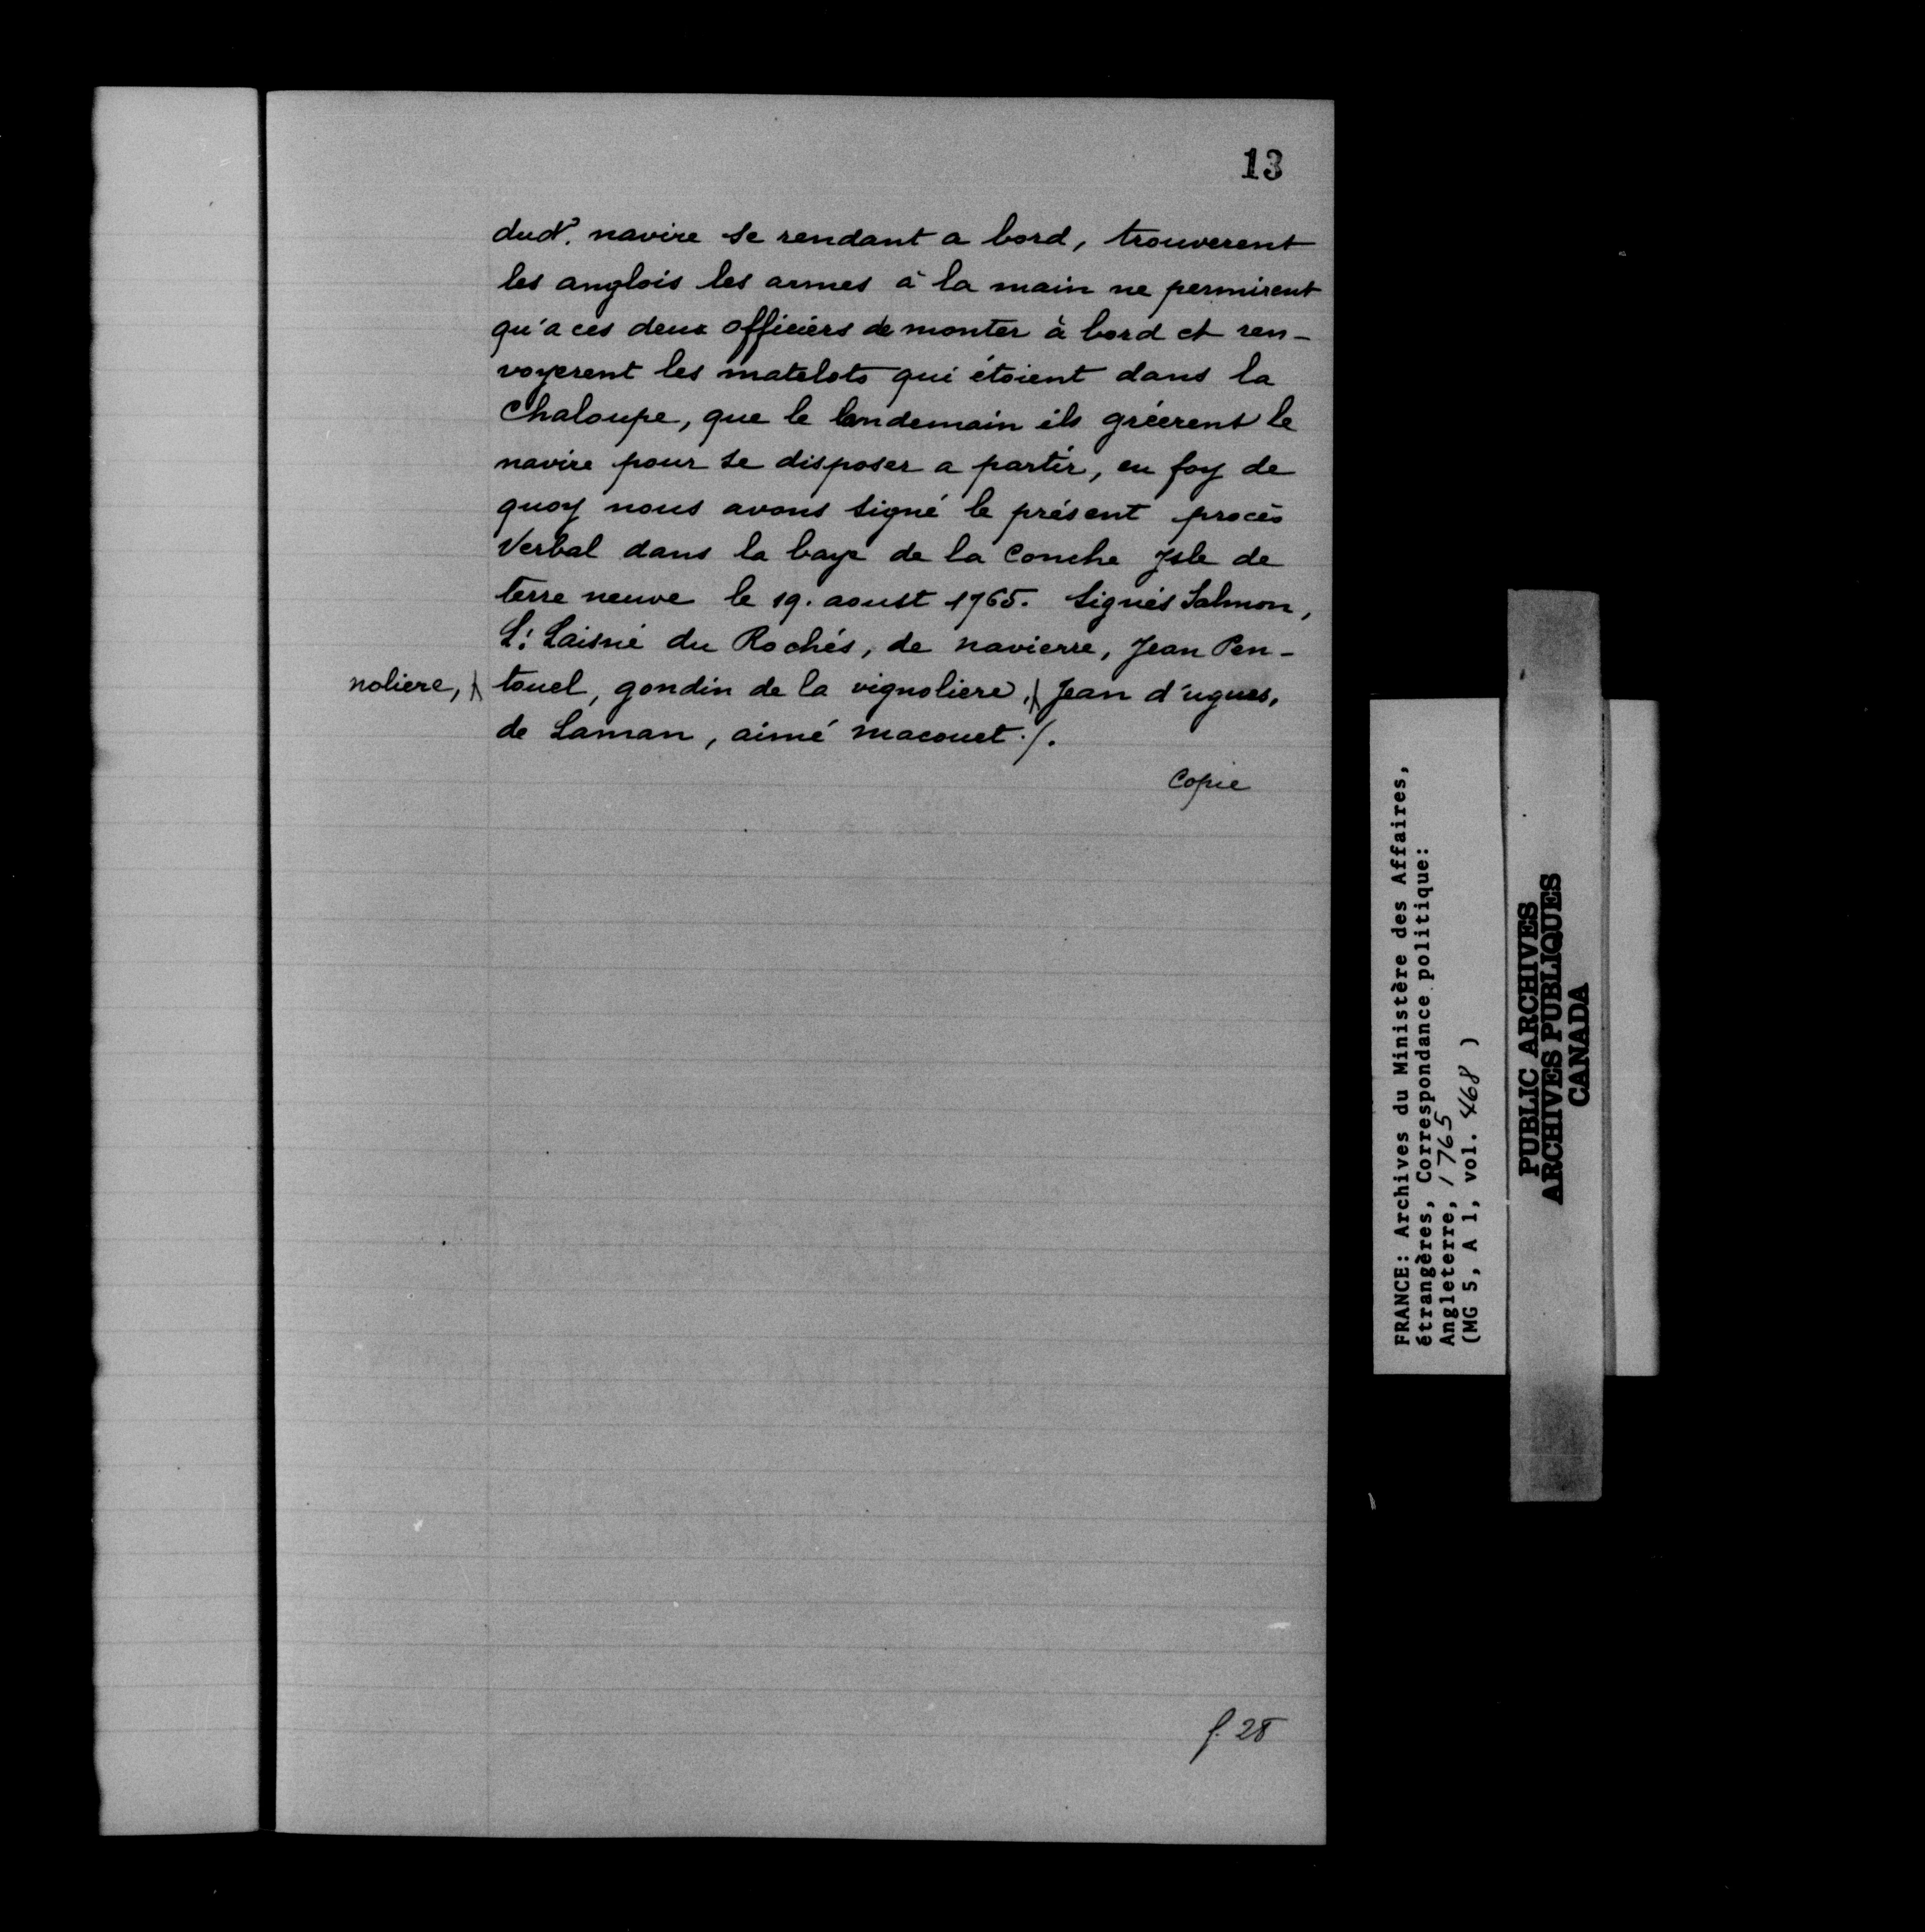 13
dud<sup>t</sup>. navire se rendant a bord, trouverent
les anglois les armes à la main ne permirent
qu'a ces deux officiers de monter à bord et ren-
voyerent les matelots qui étoient dans la
Chaloupe, que le lendemain ils gréerent le
navire pour se disposer a partir, en foy de
quoy nous avons signé le présent procès
Verbal dans la baye de la Conche Isle de
terre neuve le 19. aoust 1765. Signés Salmon,
L. Laisné du Rochés, de navierre, Jean Pen-
noliere, touel, gondin de la vignoliere, Jean d'ugues,
de Laman, aimé macouet ./.
Copie
f. 28
FRANCE: Archives du Ministère des Affaires,
étrangères, Correspondance politique:
Angleterre, 1765
(MG 5, A 1, vol. 468 )
PUBLIC ARCHIVES
ARCHIVES PUBLIQUES
CANADA